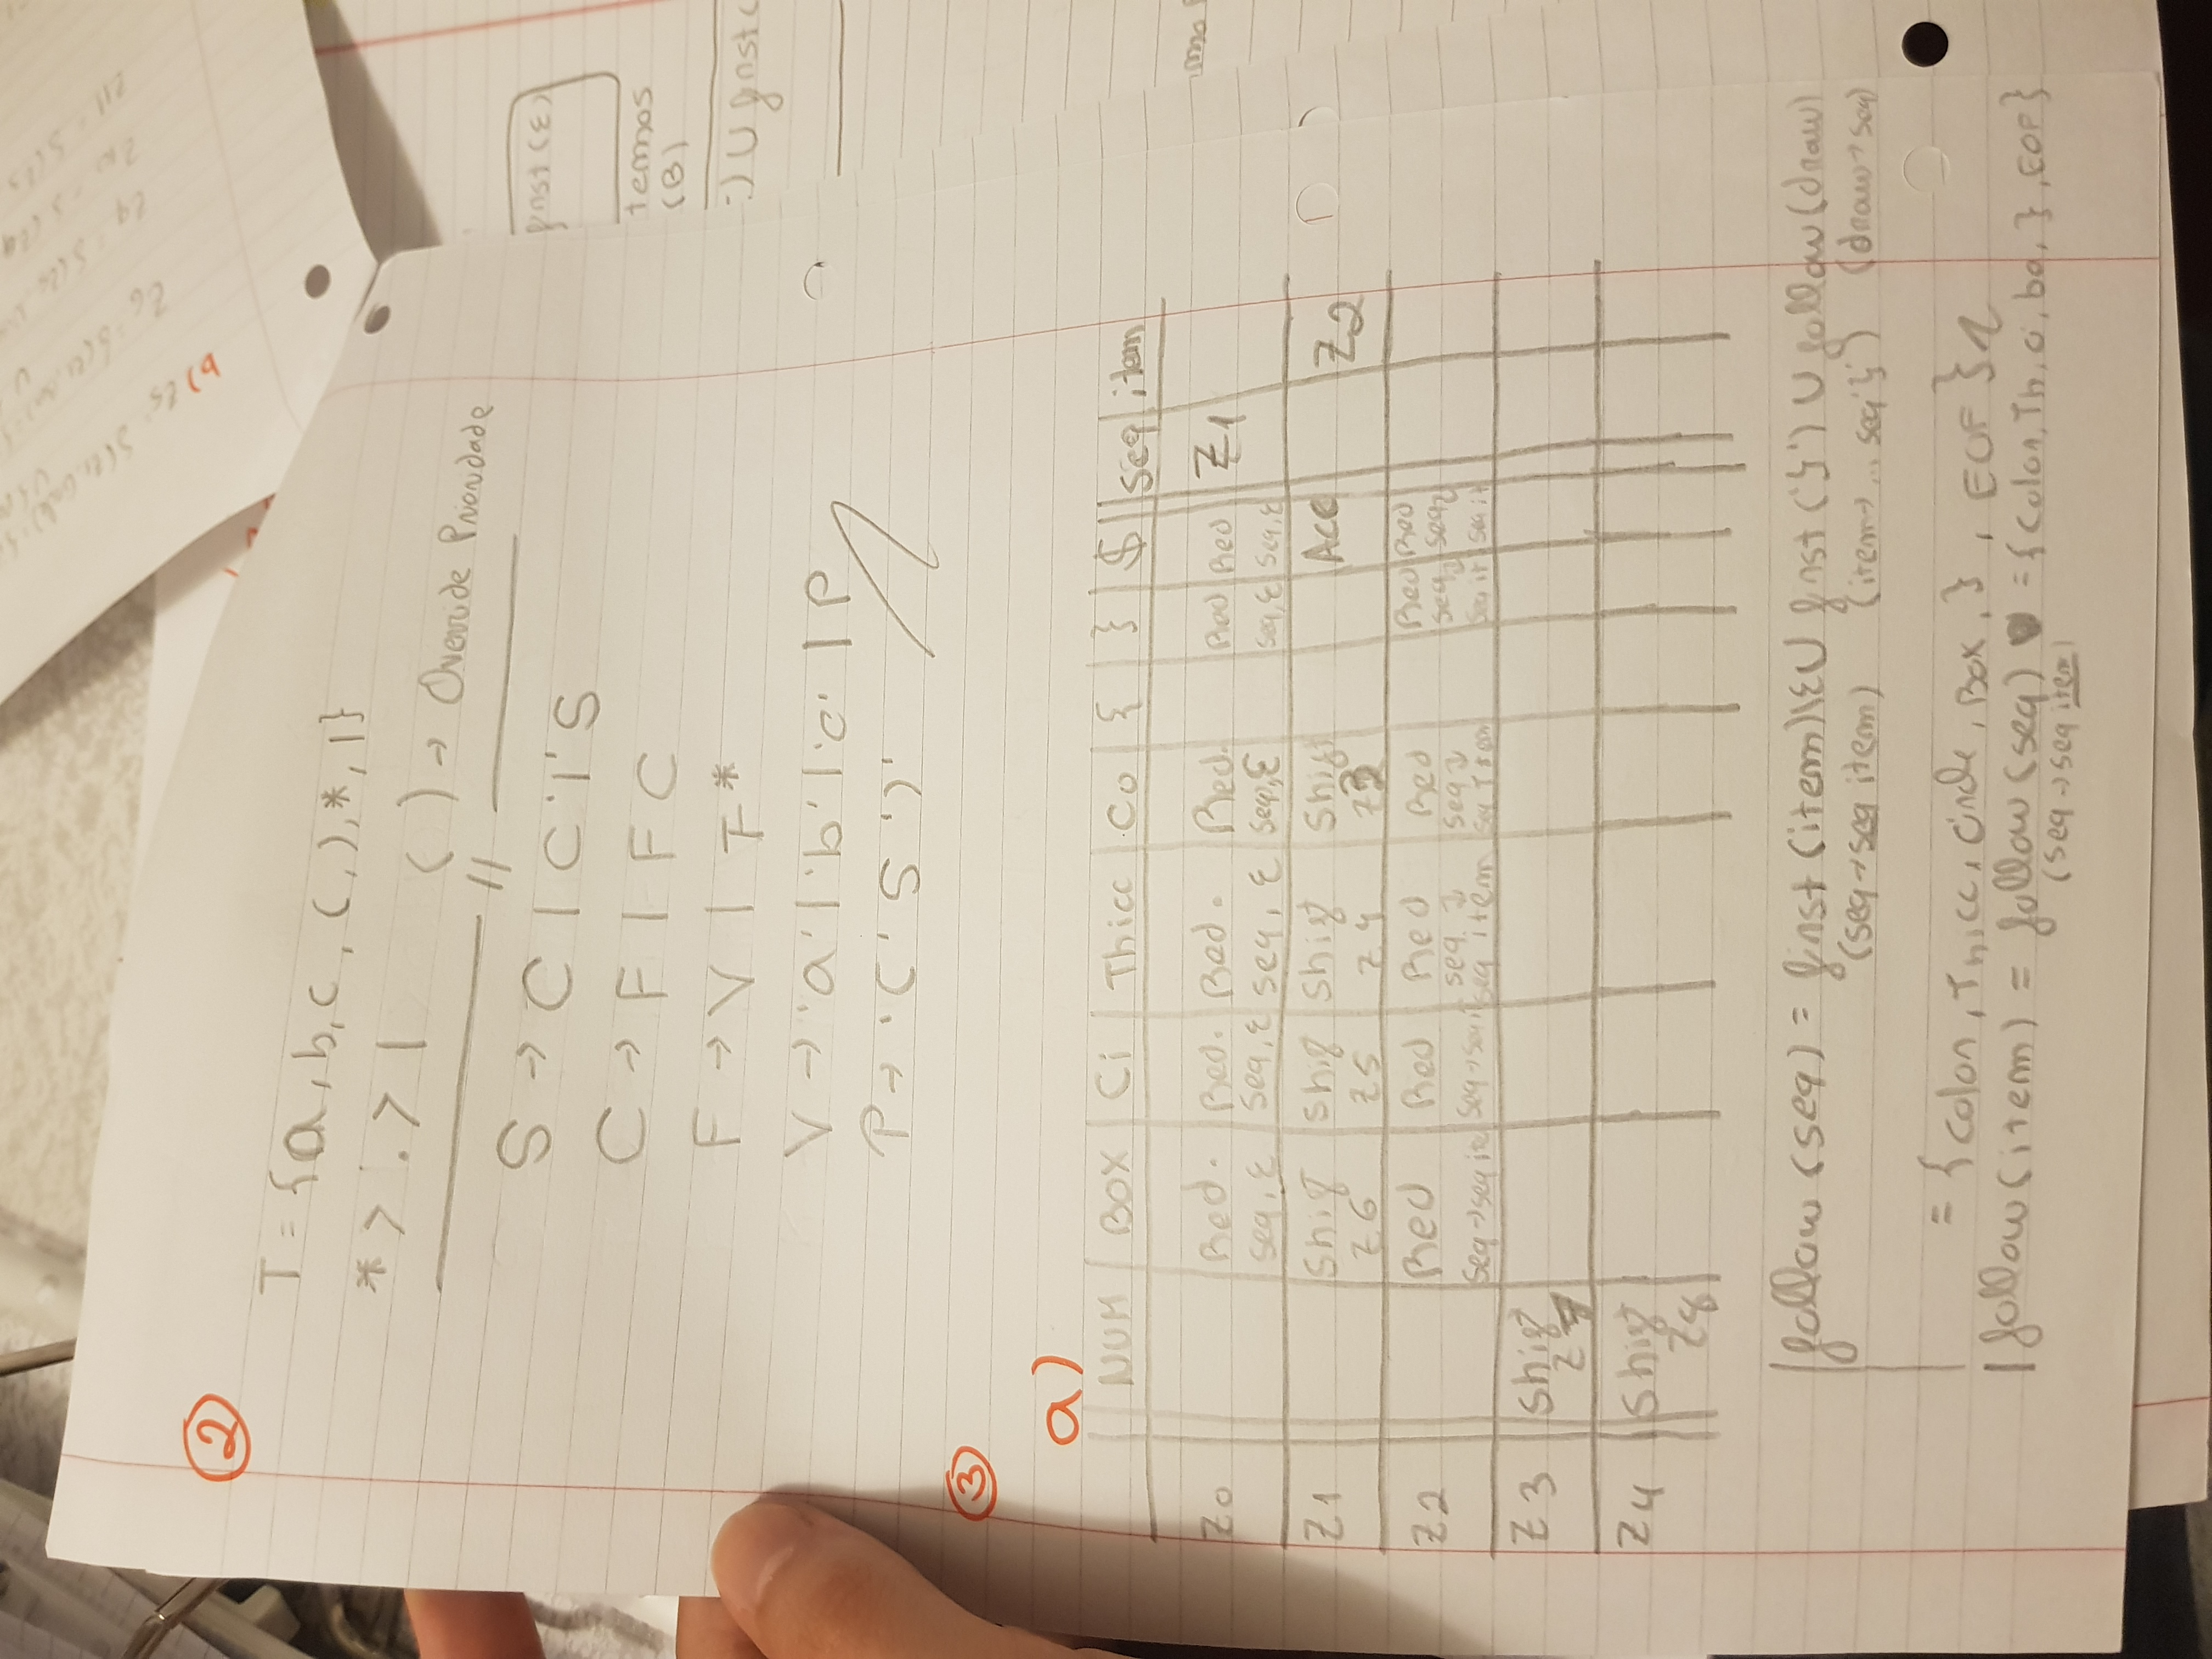 2
T = {a, b, c, (, ), *, |}
* > . > |   ( ) → Override Prioridade
//
S → C | C '|' S
C → F | F C
F → V | F *
V → 'a' | 'b' | 'c' | P
P → '(' S ')'
3
a)
NUM BOX Ci Thicc Co { } $ seq item
Z0 Red. seq, ε Red. seq, ε Red. seq, ε Red. seq, ε Red seq, ε Red seq, ε Z1
Z1 Shift Z6 Shift Z5 Shift Z4 Shift Z3 Acc Z2
Z2 Red seq → seq ite Red seq → seq i Red seq → seq item Red seq → seq item Red seq → seq it Red seq → seq it
Z3 Shift Z7
Z4 Shift Z8
follow (seq) = first (item)\ε ∪ first ('}') ∪ follow (draw)
(seq → seq item) (item → ... seq '}') (draw → seq)
= {color, Thicc, circle, Box, }, EOF}
follow (item) = follow (seq) = {color, Th, ci, bo, }, EOF}
(seq → seq item)
b)
first (ε)
termos
(B)
) ∪ first (